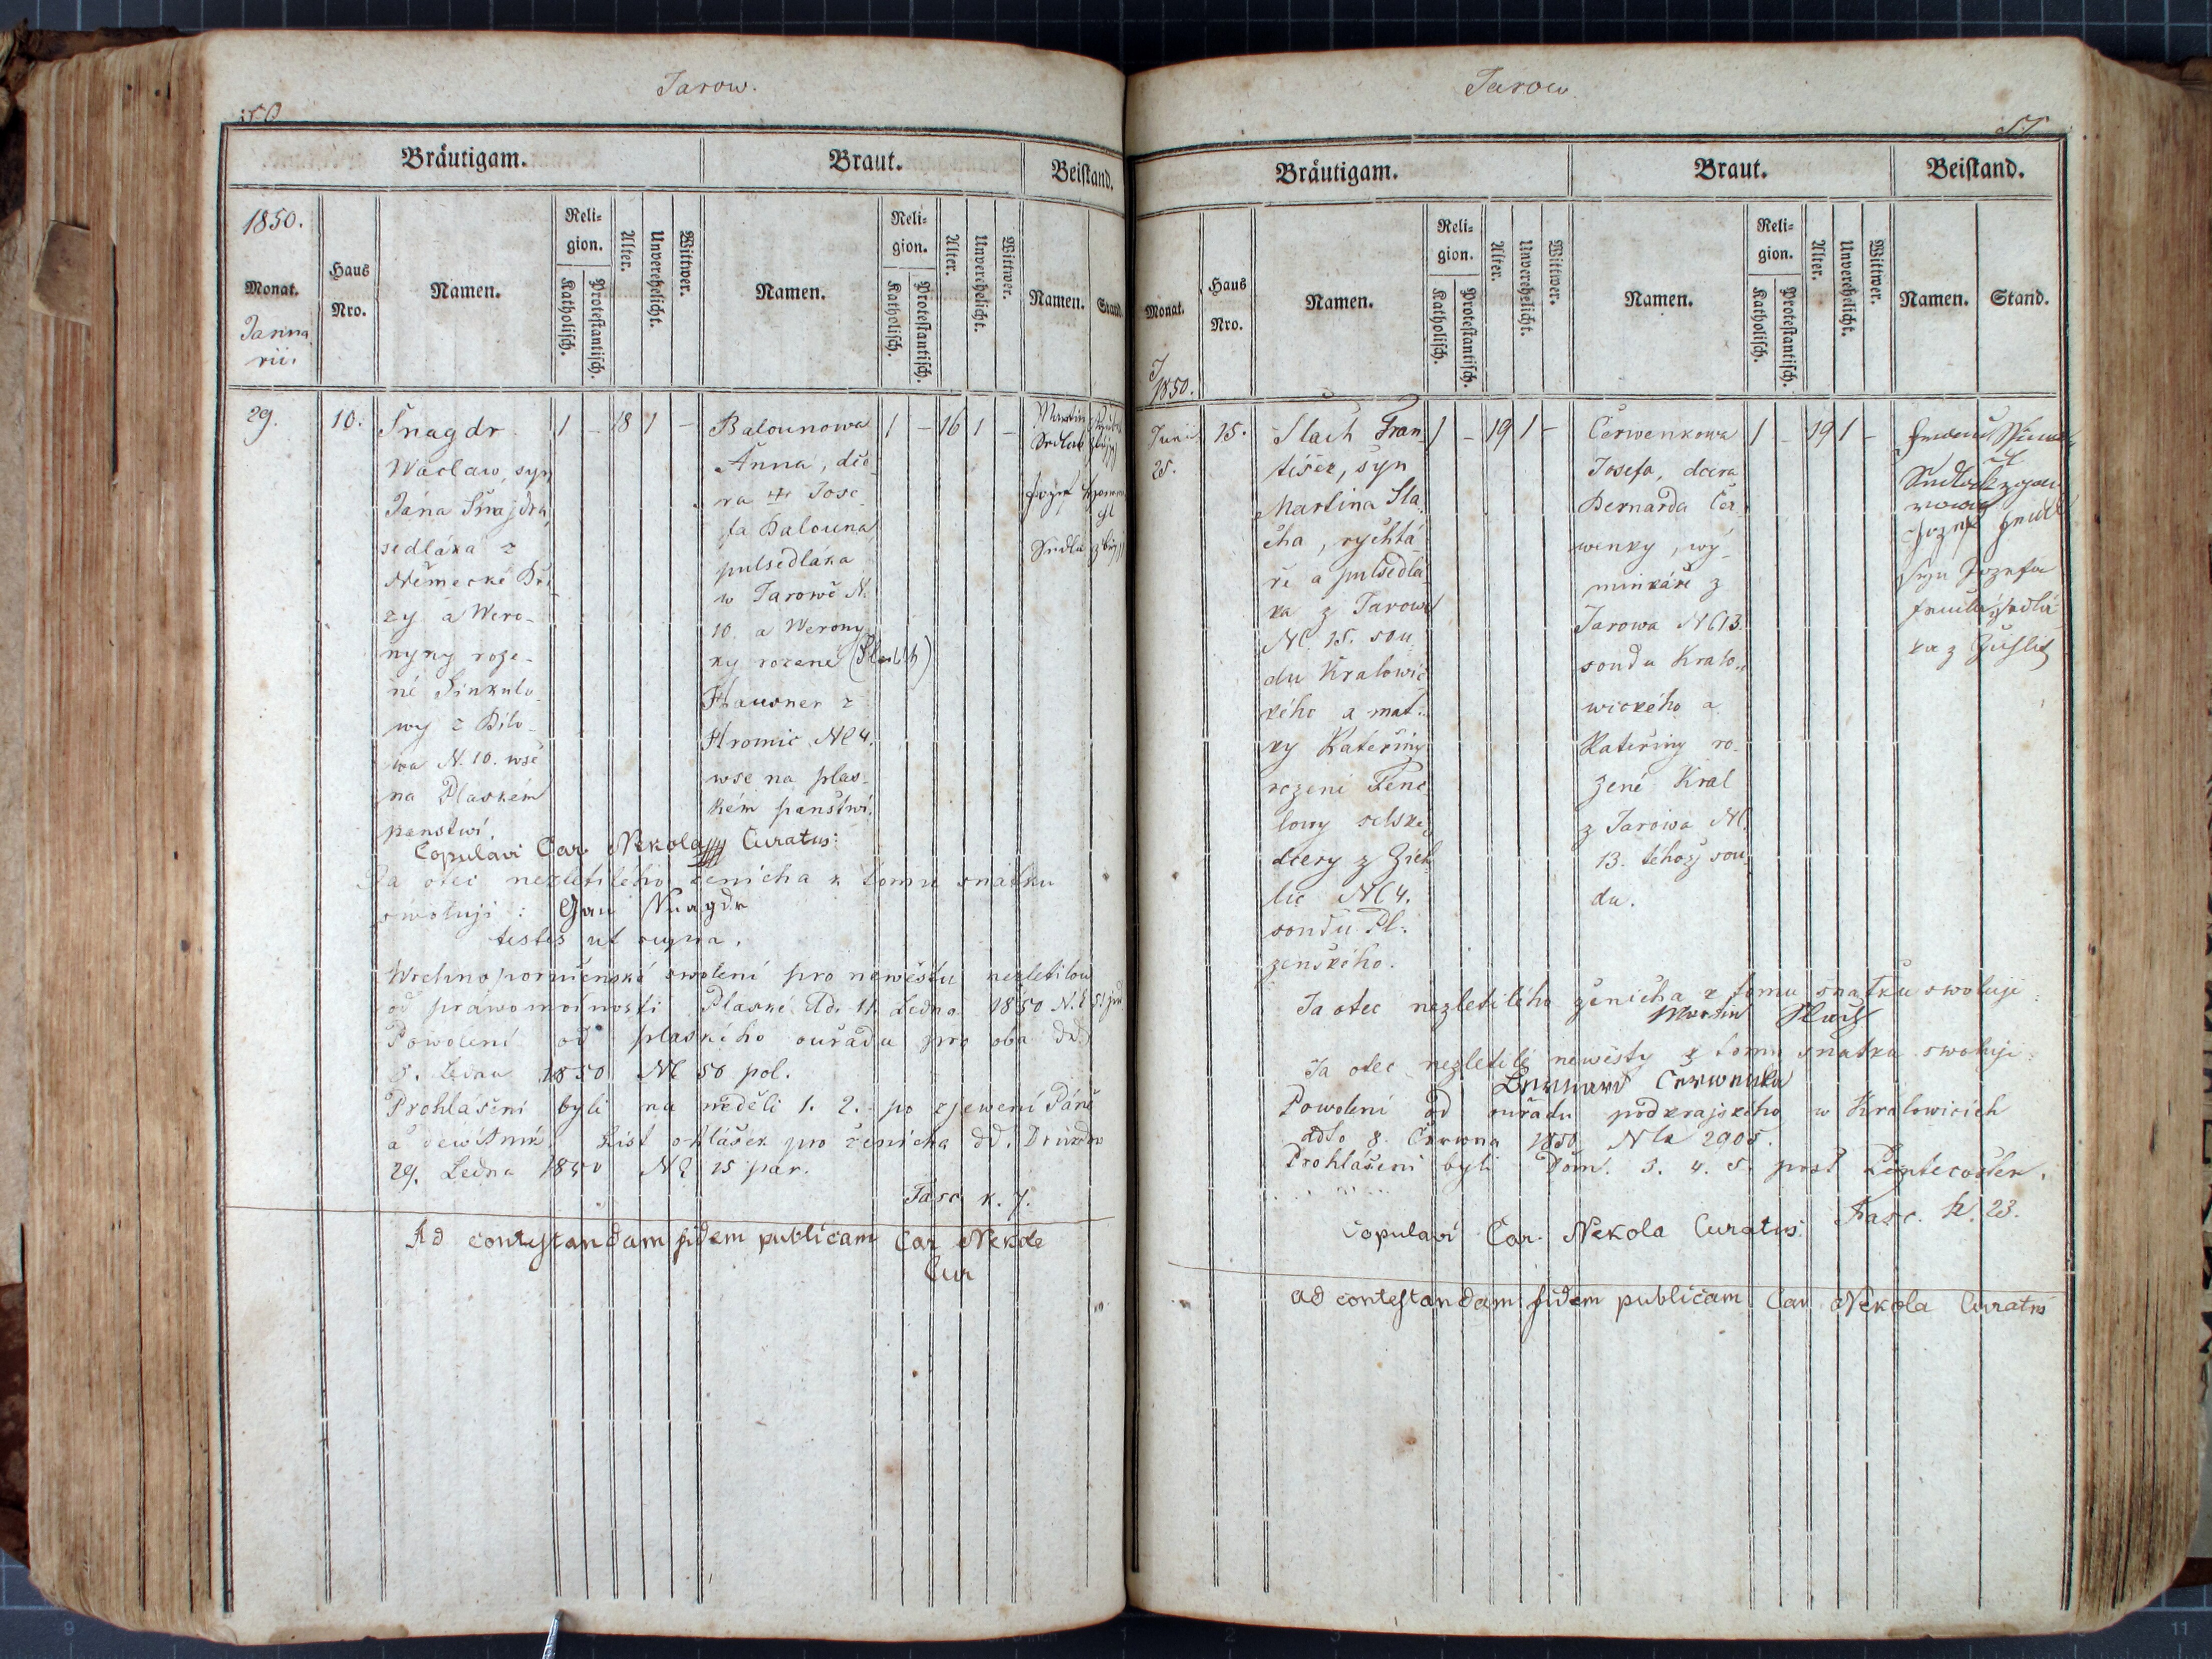 Jarow.
50
Bräutigam.
Braut.
Beistand.
1850.
Monat.
Haus Nro.
Namen.
Religion.
Katholisch.
Protestantisch.
Alter.
Unverehelicht.
Wittwer.
Namen.
Religion.
Katholisch.
Protestantisch.
Alter.
Unverehelicht.
Wittwer.
Namen.
Stand.
Janua
rii.
29.
10.
Šnagdr
Waclaw, syn
Jána Šnajdra,
sedláka z
Německé Bří
zy a Wero-
nyky roze-
né Šinkulo
wy z Bílo-
wa N. 10. wsé
na Plaském
panstwí.
1 - 18 1 -
Balounowa
Anna, dce
ra Jose
fa Balouna
pulsedláka
w Jarowě N.
10. a Werony
ky rozené
Hausner z
Hromic NC 4.
wse na plas-
kém panstwí.
1 - 16 1 -
Martin
Sedlak
Jozef
Copulavi Car. Nekola Curatus:
Ja otec nezletilého ženicha k tomu sňatku
swoluji: Jan Šnagdr
testes ut supra.
Wrchnoporučenské swolení pro newěstu nezletilou
od práwomocnosti Plaské dd. 11 Ledna 1850 N.
Powolení od plaského ouřadu pro oba dd.
5. Ledna 1850 NE 50 pol.
Prohlášeni byli na neděli 1. 2. po zjewení Páně
a dewítník. List ohlášek pro ženicha dd.
29. Ledna 1850 NE 15 par.
Fasc. K. 7.
Ad contestandam fidem publicam Car Nekola
Cur
Jarow
51
Bräutigam.
Braut.
Beistand.
Monat.
Haus Nro.
Namen.
Religion.
Katholisch.
Protestantisch.
Alter.
Unverehelicht.
Wittwer.
Namen.
Religion.
Katholisch.
Protestantisch.
Alter.
Unverehelicht.
Wittwer.
Namen.
Stand.
1850.
Juni
25.
15.
Slach Fran
tišek, syn
Martina Sla
cha, rychtá
ře a pulsedlá
ka z Jarowa
NC. 15. sou
du Kralowic
kého a mat-
ky Kateřiny
rozené Fenc
lowy selské
dcery z Žich
lic NC 4.
soudu Pl-
zenského.
1 - 19 1 -
Čerwenkowa
Josefa, dcera
Bernarda Čer
wenky, wý-
minkáře z
Jarowa NC 13.
soudu Kralo-
wického a
Kateřiny ro-
zené Kral
z Jarowa NC.
13. téhož sou
du.
1 - 19 1 -
Sedlak z
Jozef Fencl
syn Jozefa
Fencla, sedlá-
ka z Žichlic
Ja otec nezletilého ženicha k tomu sňatku swoluji:
Martin Slach
Ja otec nezletilé newěsty k tomu sňatku swoluji:
Bernard Čerwenka
Powolení od ouřadu podkrajského w Kralowicích
ddto 8. Čerwna 1850 Nk 2905.
Prohlášeni byli Dom. 3. 4. 5. post Pentecosten.
Fasc. K. 23.
Copulavi Car. Nekola Curatus:
ad contestandam fidem publicam Car. Nekola Curatus